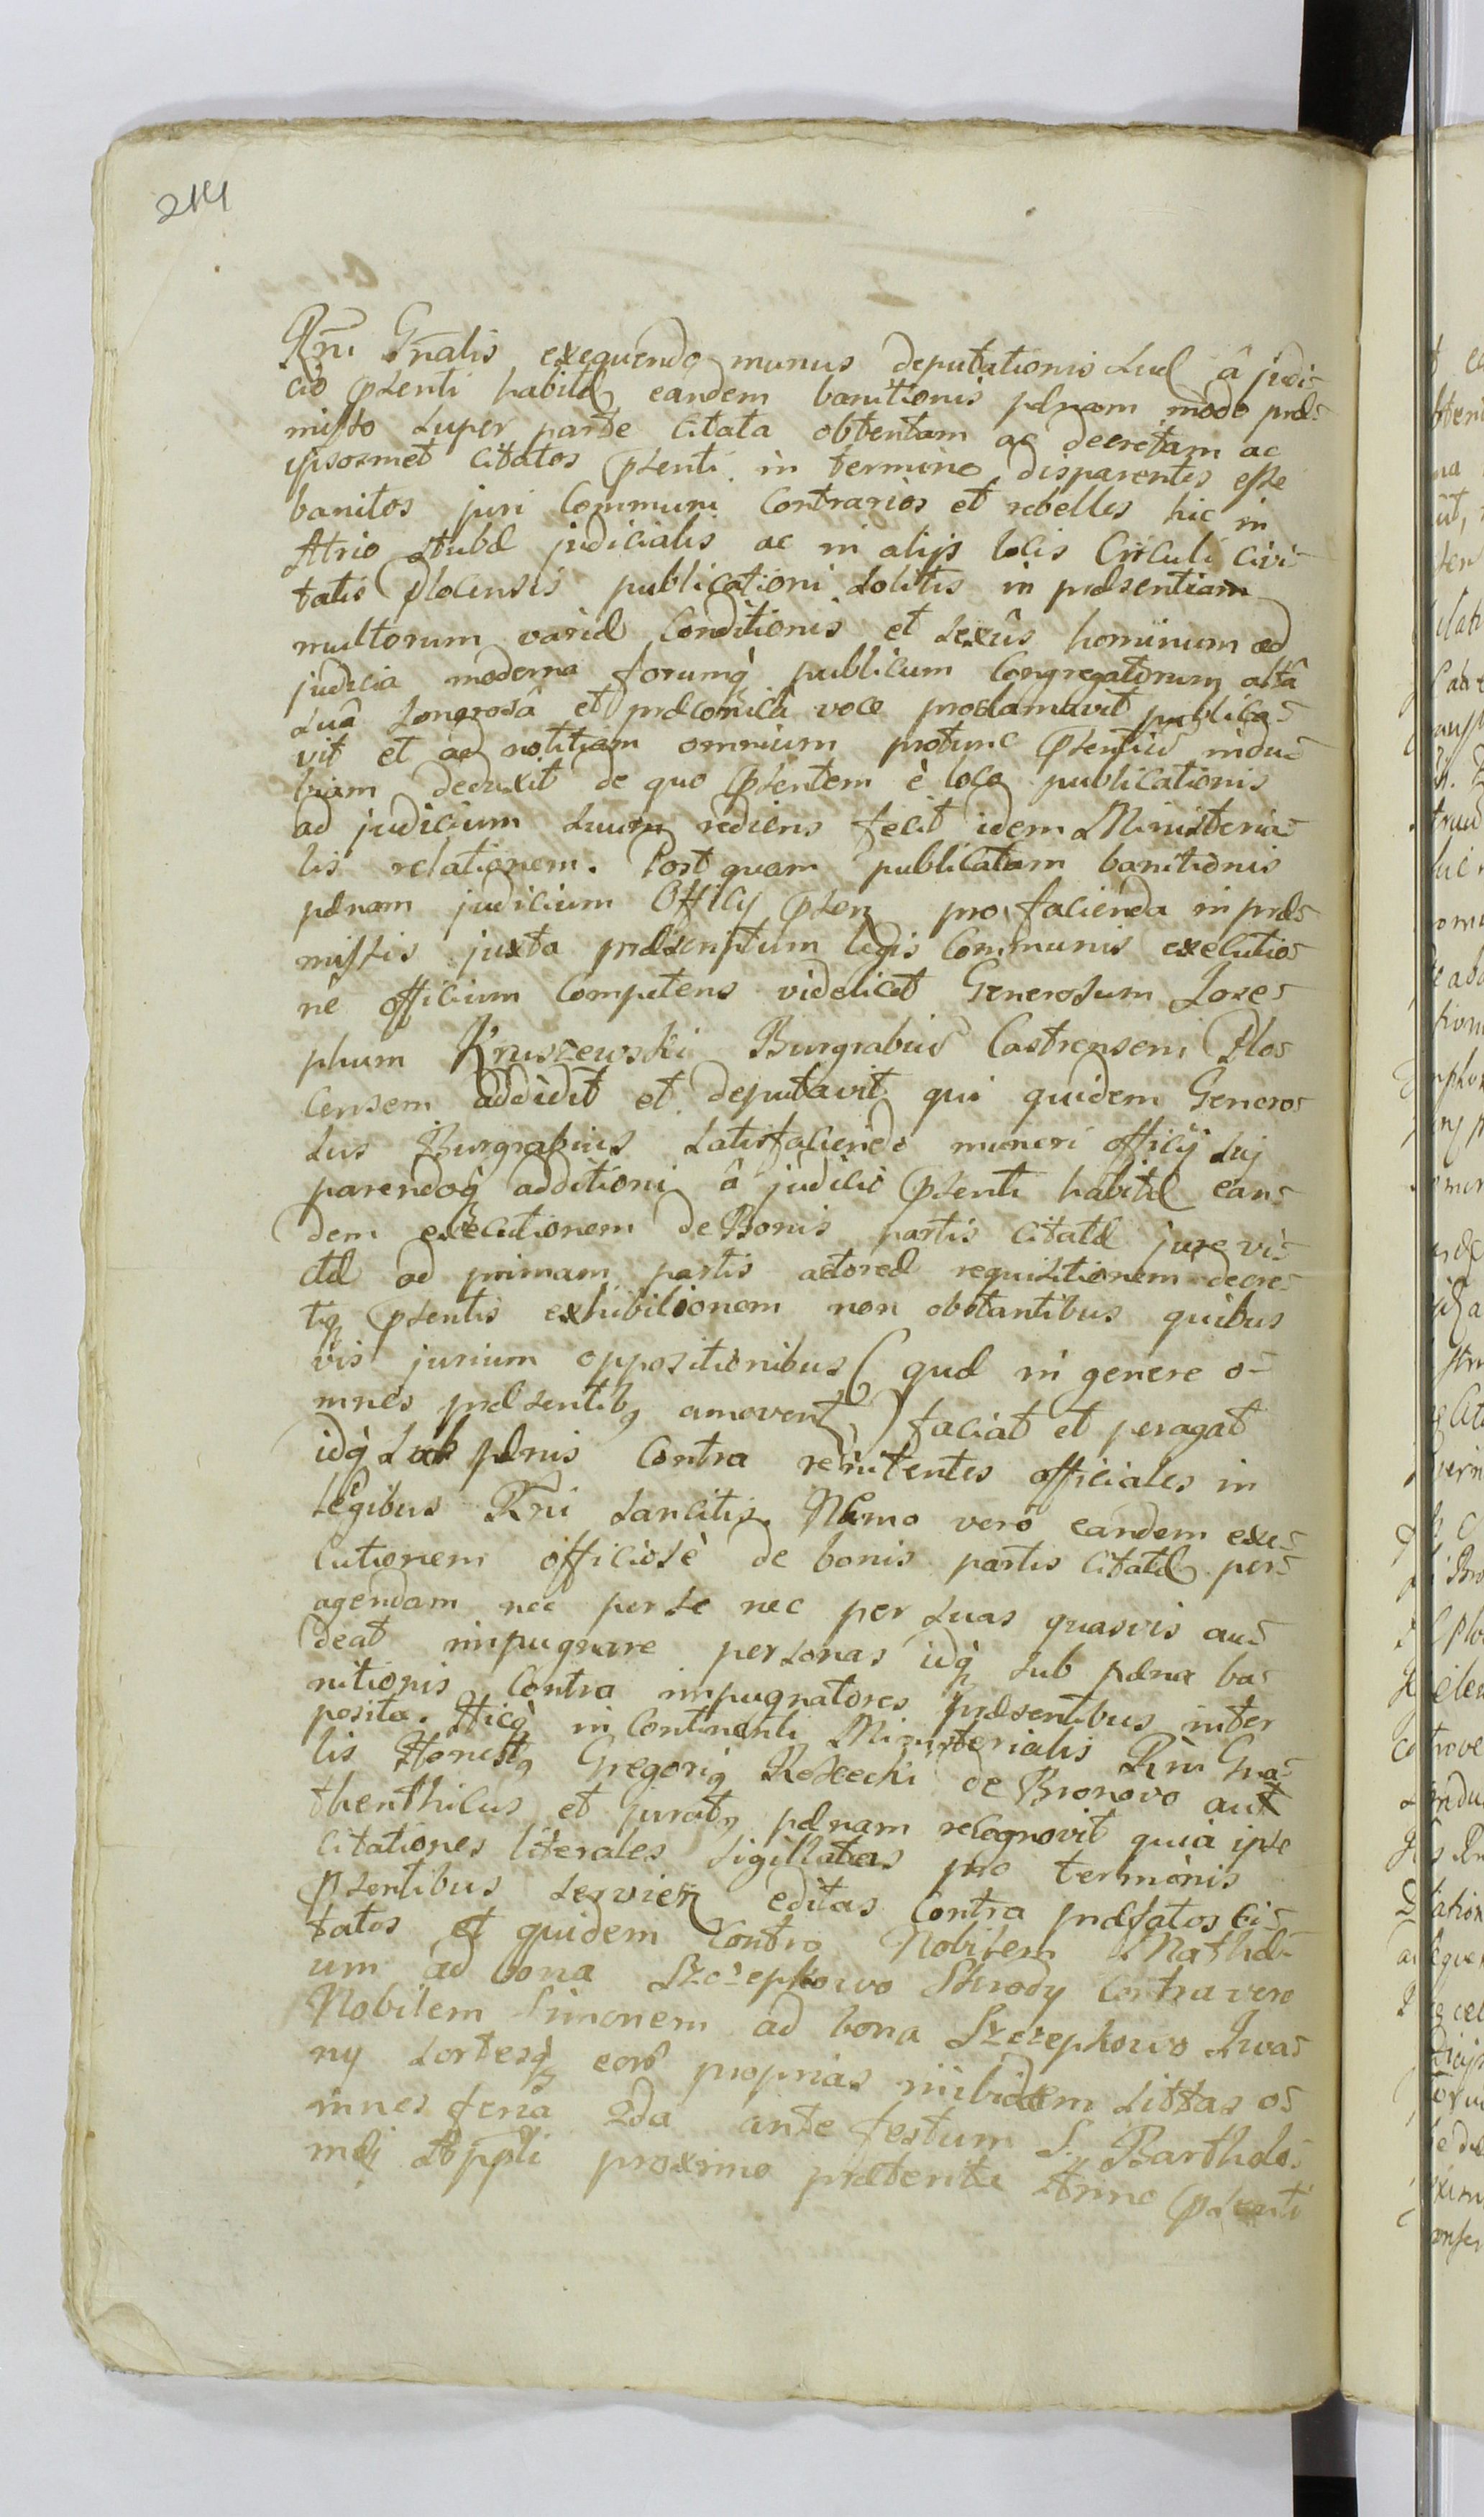 214
Rñi Gñalis exequendo munus deputationis suæ â judi-
cio pñsenti habitæ eandem banitionis pænam modo præ-
misso super parte citata obtentam ac decretam ac
ipsosmet citatos pñsenti in termino disparentes esse
banitos juri communi contrarios et rebelles hic in
Atrio stubæ judicialis ac in alijs locis Circuli civi-
tatis Plocensis publicationi solitis in præsentiam
multorum variæ conditionis et sexûs hominum ad
judicia moderna forumq̃ publicum congregatorum altâ
suâ sonorosâ et præconicâ voce proclamavit publica-
vit et ad notitiam omnium protunc pñsentiũ indu-
biam deduxit de quo pñsentem è loco publicationis
ad judicium suum rediens fecit idem Ministeria-
lis relationem. Post quam publicatam banitionis
pænam judicium Officij pñsen pro facienda in præ-
missis juxta præscriptum legis communis executio-
ne officium competens videlicet Generosum Jose-
phum Kruszewski Burgrabiũ Castrensem Plo-
censem addidit et deputavit qui quidem Genero-
sus Burgrabius satisfaciendo muneri officij sui
parendoq̃ additioni â judicio pñsenti habitæ ean-
dem executionem de Bonis partis citatæ jure vi-
ctæ ad primam partis actoreæ requisitionem decre-
tiq̃ pñsentis exhibitionem non obstantibus quibus
vis jurium oppositionibus (quæ in genere o-
mnes præsentibq amovent) faciat et peragat
idq̃ sub pænis contra renitentes officiales in
legibus Rñi sancitis. Nemo vero eandem exe-
cutionem officiosè de bonis partis citatæ per-
agendam nec per se nec per suas quasvis au-
deat impugnare personas idq̃ sub pæna ba-
nitionis contra impugnatores præsentibus inter
posita. Hicq̃ in continenti Ministerialis Rñi Gna-
lis Honestq Gregoriq Resecki de Bronovo aut
thenthicus et juratq pænam recognovit quia ipse
citationes literales sigillatas pro terminis
pñsentibus servien editas contra præfatos ci-
tatos et quidem contra Nobilem Mathæ-
um ad bona Szczepkowo Skrody contra vero
Nobilem Simonem ad bona Szczepkowo Iwa-
ny sortesq̃ eorũ proprias inibidem sittas o-
mnes feria 2da ante festum S. Bartholo-
mæi Appli proxime præterita Anno pñsenti